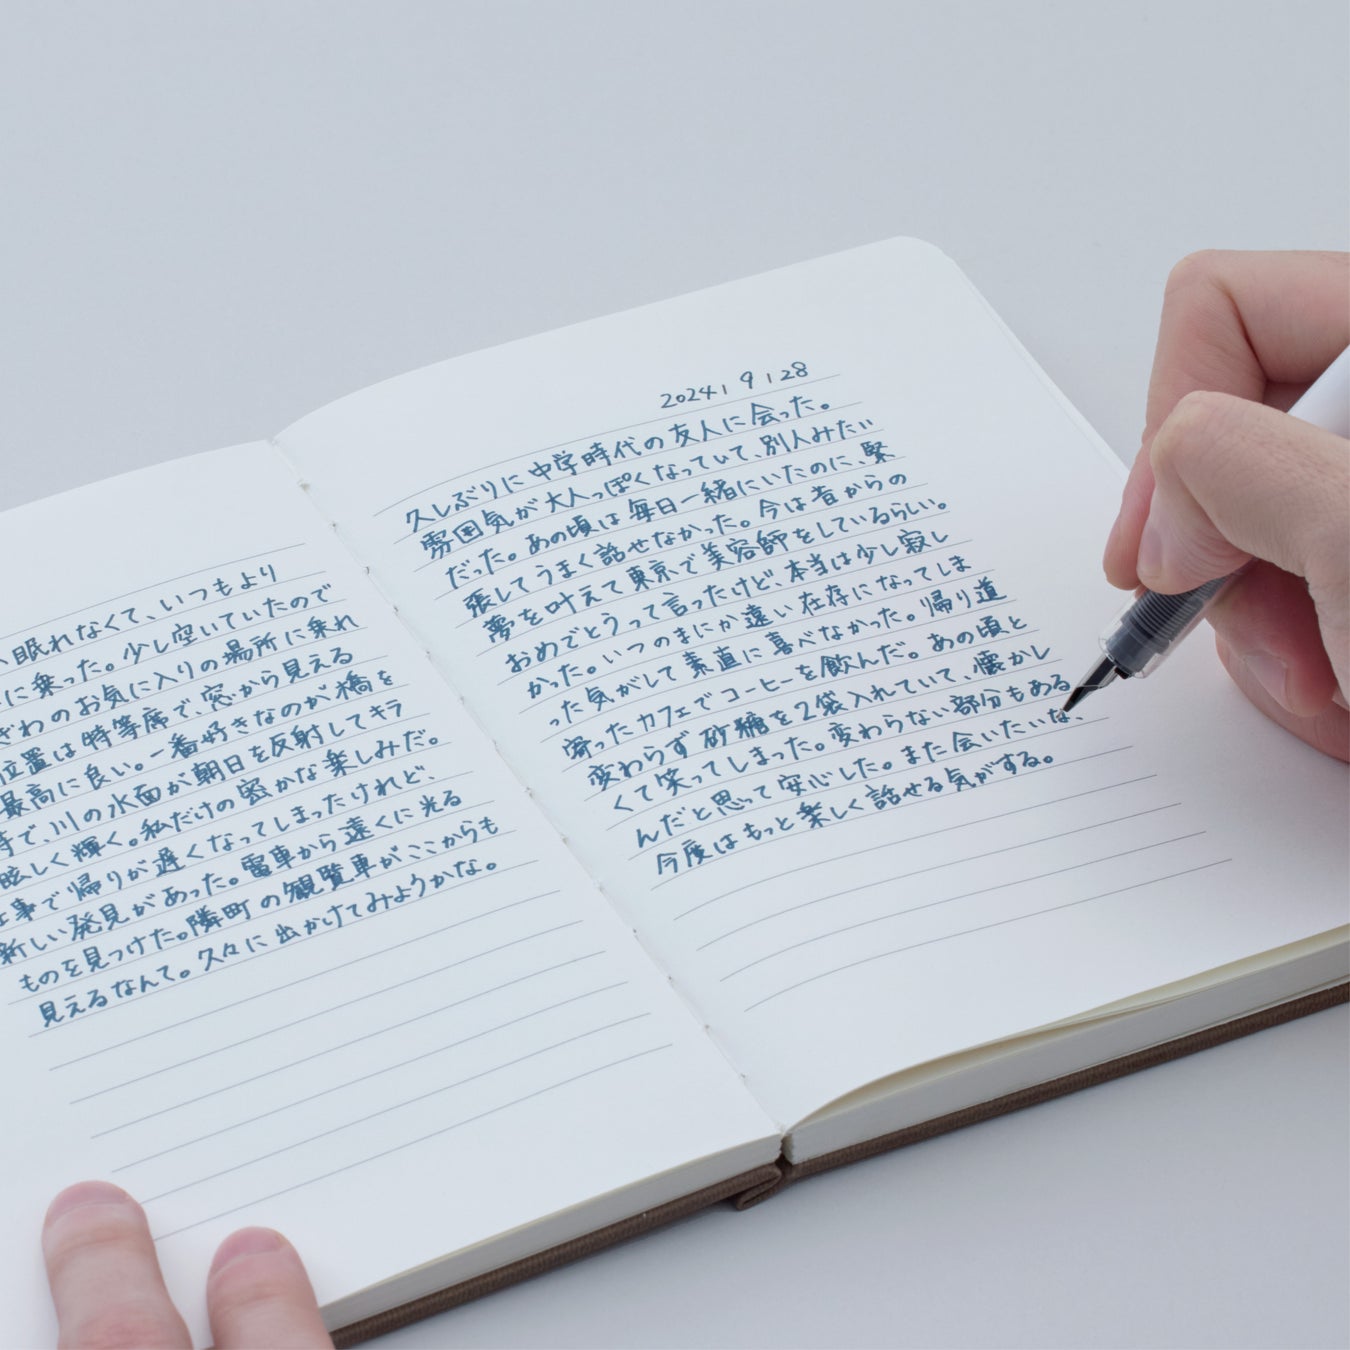 、眠れなくて、いつもより
に乗った。少し空いていたので
ぎわのお気に入りの場所に乗れ
位置は特等席で、窓から見える
最高に良い。一番好きなのが橋を
時で、川の水面が朝日を反射してキラ
眩しく輝く。私だけの密かな楽しみだ。
仕事で帰りが遅くなってしまったけれど、
新しい発見があった。電車から遠くに光る
ものを見つけた。隣町の観覧車がここからも
見えるなんて。久々に出かけてみようかな。
2024 | 9 | 28
久しぶりに中学時代の友人に会った。
雰囲気が大人っぽくなっていて、別人みたい
だった。あの頃は毎日一緒にいたのに、緊
張してうまく話せなかった。今は昔からの
夢を叶えて東京で美容師をしているらしい。
おめでとうって言ったけど、本当は少し寂し
かった。いつのまにか遠い存在になってしま
った気がして素直に喜べなかった。帰り道
寄ったカフェでコーヒーを飲んだ。あの頃と
変わらず砂糖を2袋入れていて、懐かし
くて笑ってしまった。変わらない部分もある
んだと思って安心した。また会いたいな、
今度はもっと楽しく話せる気がする。